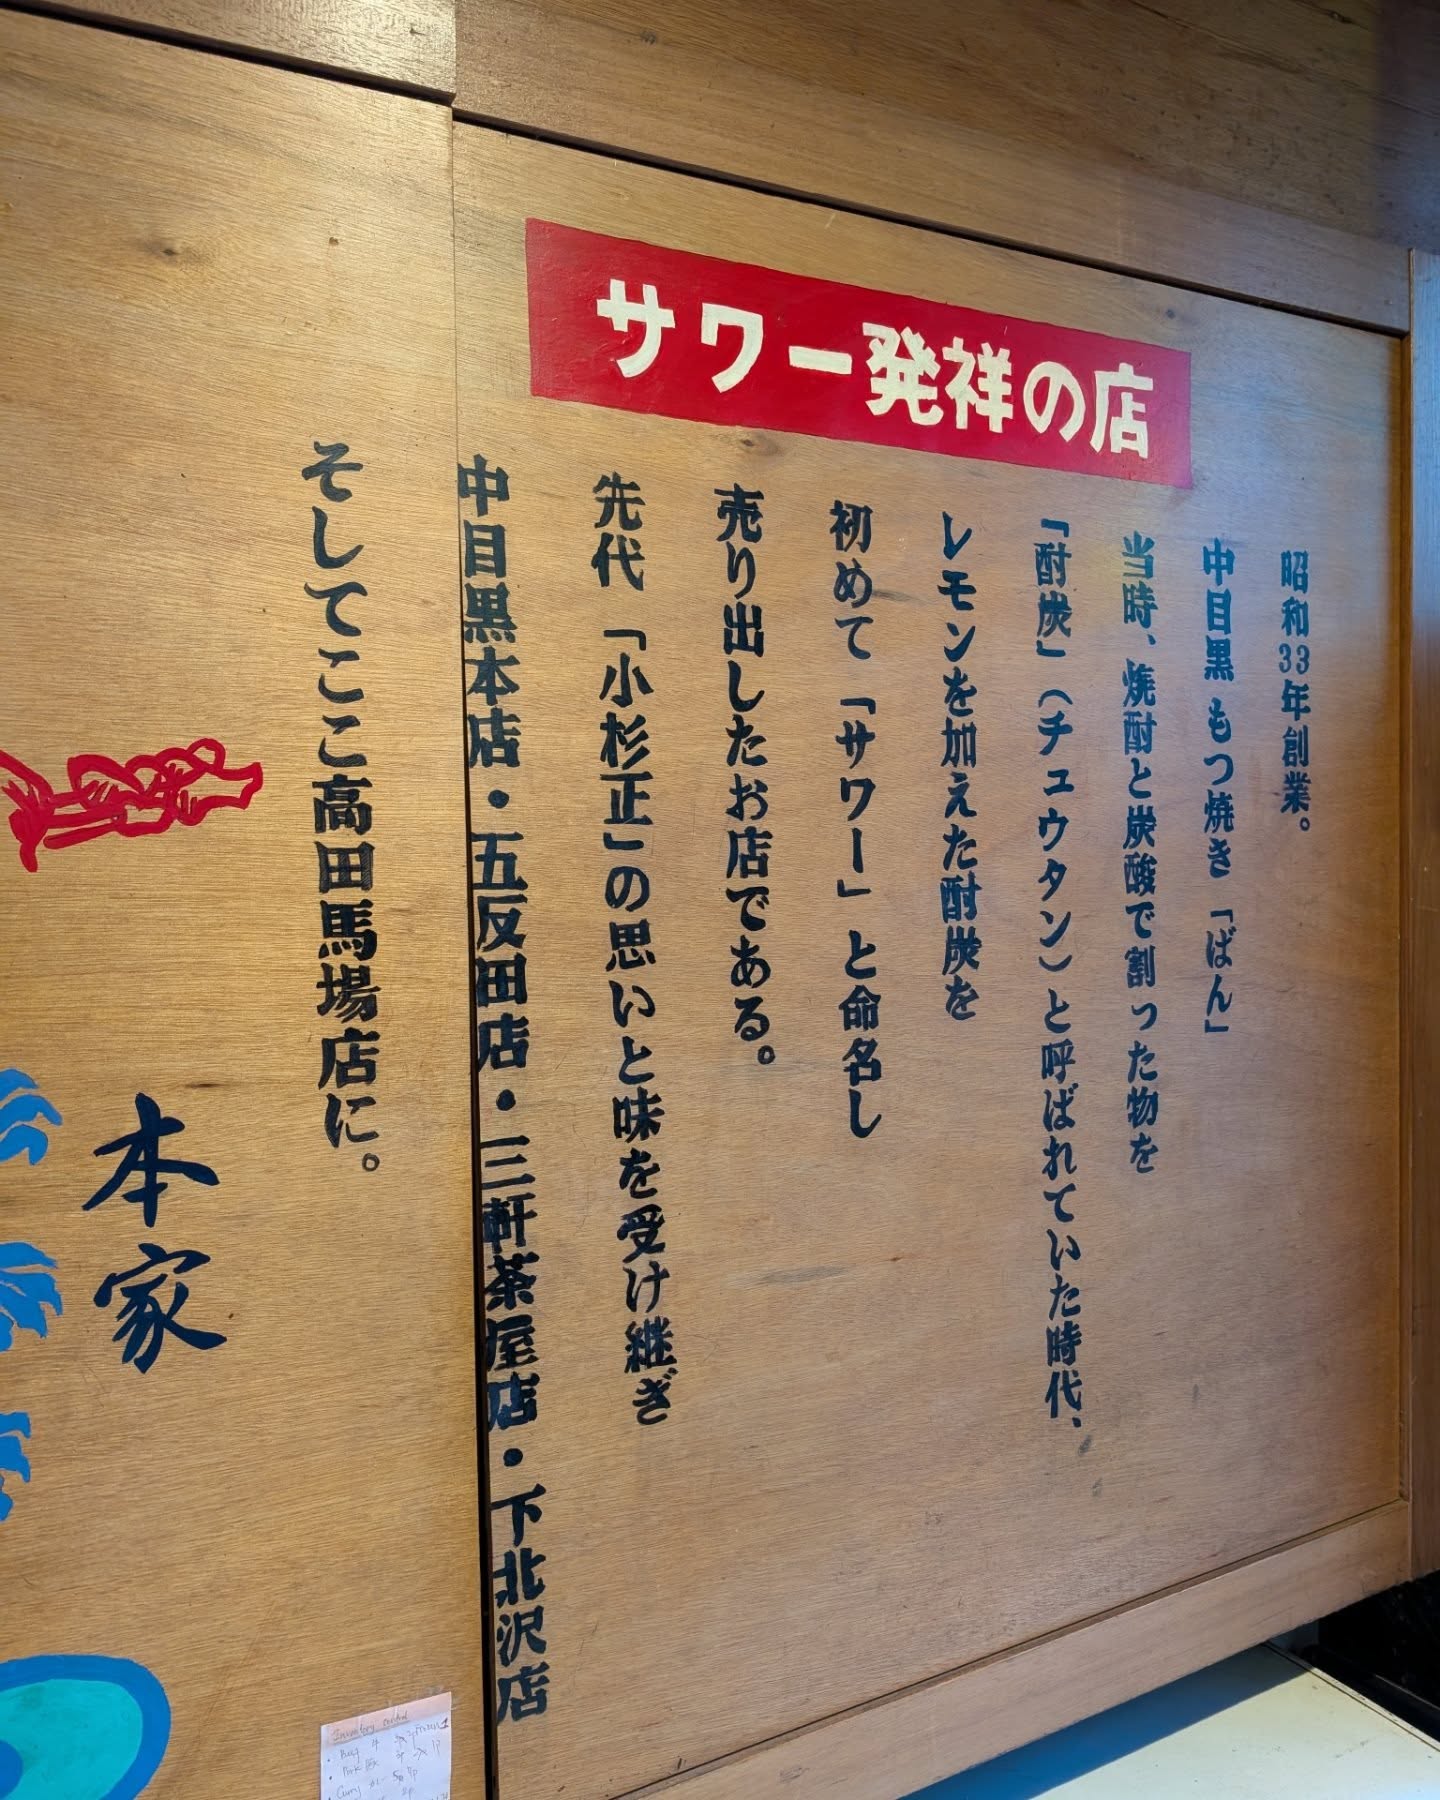 サワー発祥の店
昭和33年創業。
中目黒 もつ焼き「ばん」
当時、焼酎と炭酸で割った物を
「酎炭」（チュウタン）と呼ばれていた時代、
レモンを加えた酎炭を
初めて「サワー」と命名し
売り出したお店である。
先代「小杉正」の思いと味を受け継ぎ
中目黒本店・五反田店・三軒茶屋店・下北沢店
そしてここ高田馬場店に。
本家
Inventory control